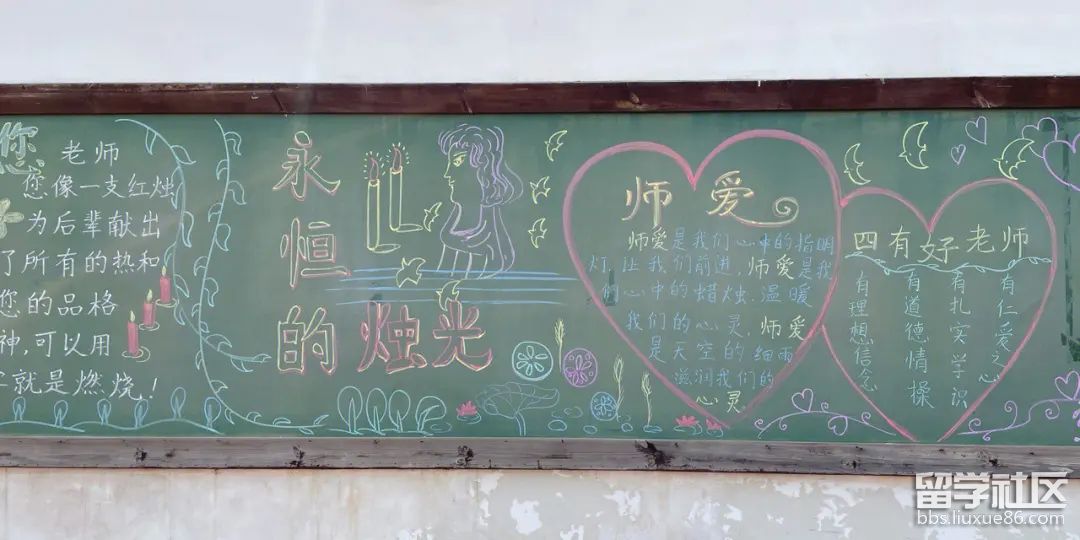 您
老师
您像一支红烛
为后辈献出
了所有的热和
您的品格
神,可以用
就是燃烧!
永恒的烛光
师爱
师爱是我们心中的指明
灯,让我们前进,师爱是我
们心中的蜡烛,温暖
我们的心灵,师爱
是天空的细雨
滋润我们的
心灵
四有好老师
有理想信念
有道德情操
有扎实学识
有仁爱之心
留学社区
bbs.liuxue86.com